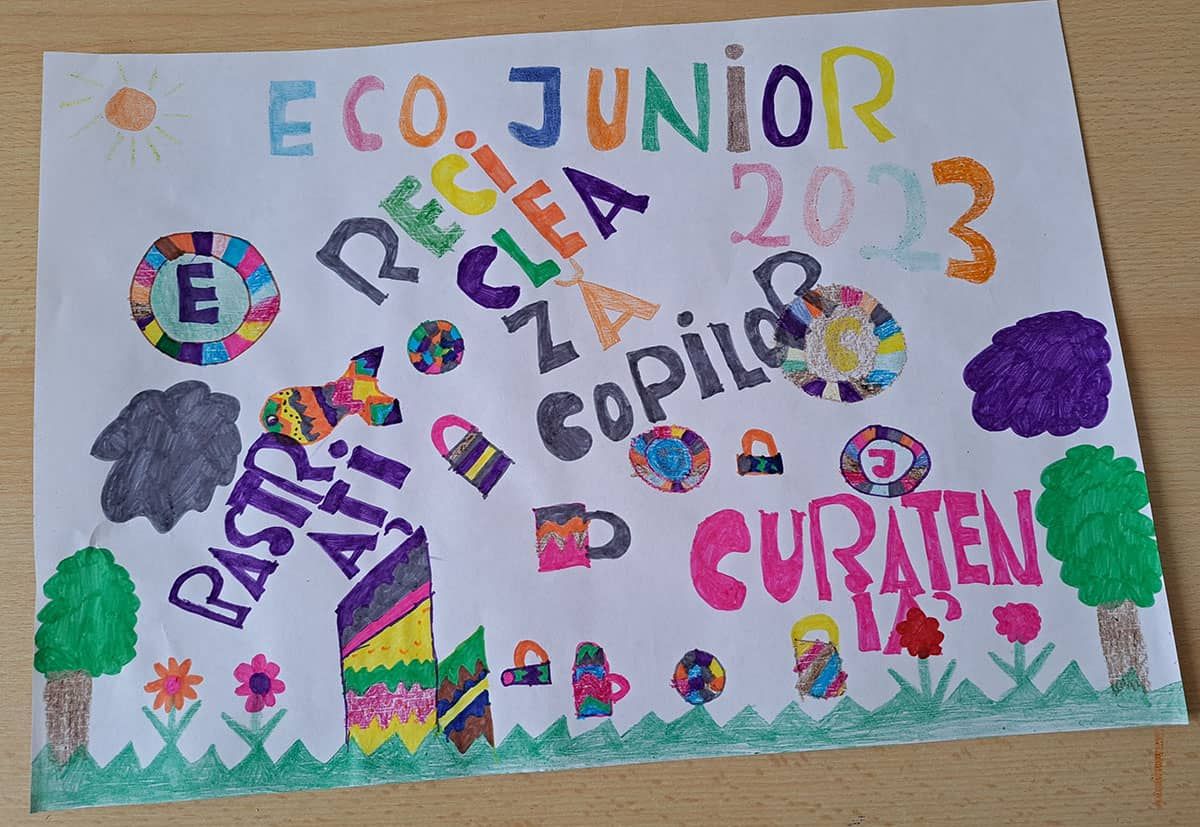 ECO JUNiOR
2023
RECi
CLEA
ZA
COPiLOR
E
C
J
PASTR
ATi
CURATEN
iA